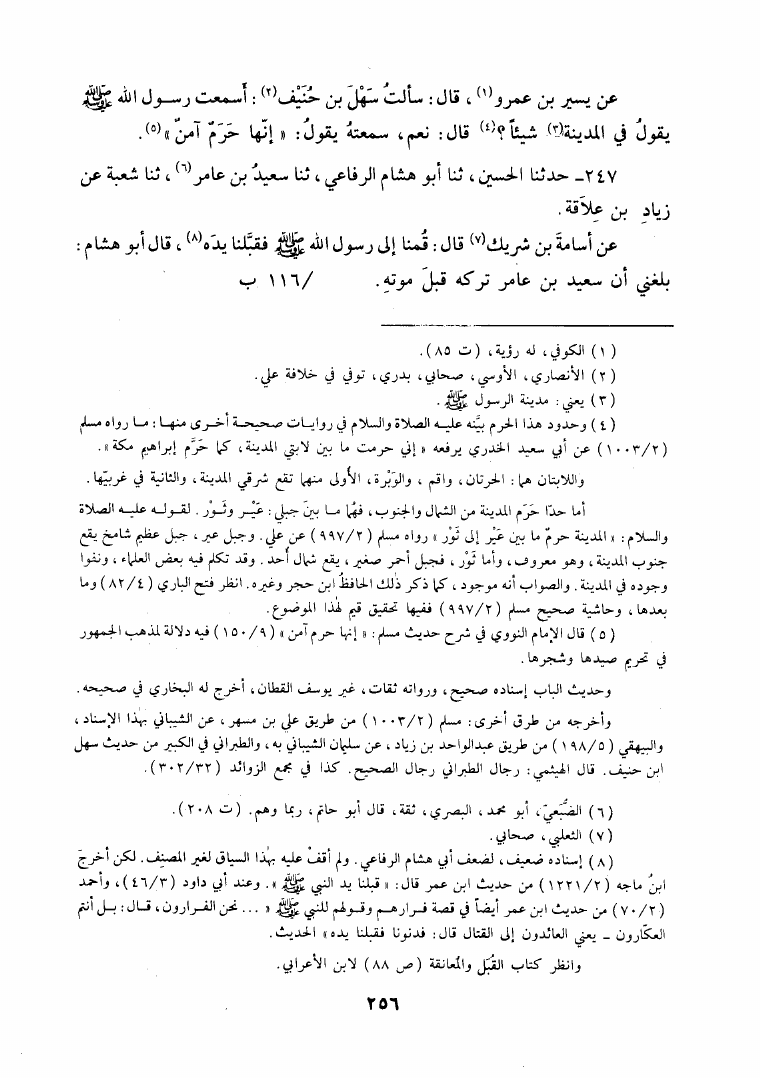 عن يسير بن عمرو(١)، قال: سألتُ سَهْلَ بن حُنَيْف(٢): أَسمعت رسول الله ﷺ
يقولُ في المدينة(٣) شيئاً؟(٤) قال: نعم، سمعتهُ يقولُ: « إنّها حَرَمٌ آمنٌ »(٥).
٢٤٧ـ حدثنا الحسين، ثنا أبو هشام الرفاعي، ثنا سعيدُ بن عامر(٦)، ثنا شعبة عن
زيادِ بن عِلاَقة.
عن أسامةَ بن شريك(٧) قال: قُمنا إلى رسول الله ﷺ فقبَّلنا يدَه(٨)، قال أبو هشام:
بلغني أن سعيد بن عامر تركه قبلَ موتهِ. /١١٦ ب
(١) الكوفي، له رؤية، (ت ٨٥).
(٢) الأنصاري، الأوسي، صحابي، بدري، توفي في خلافة علي.
(٣) يعني: مدينة الرسول ﷺ.
(٤) وحدود هذا الحرم بيَّنه عليه الصلاة والسلام في روايات صحيحة أخرى منها: ما رواه مسلم
(١٠٠٣/٢) عن أبي سعيد الخدري يرفعه « إني حرمت ما بين لابتي المدينة، كما حَرَّم إبراهيم مكة ».
واللابتان هما: الحرتان، واقم، والوَبْرة، الأولى منهما تقع شرقي المدينة، والثانية في غربيّها.
أما حدّا حَرَم المدينة من الشمال والجنوب، فهُما ما بينَ جبلي: عَيْر وثَوْر. لقوله عليه الصلاة
والسلام: « المدينة حرمٌ ما بين عَيْر إلى ثَوْر » رواه مسلم (٩٩٧/٢) عن علي. وجبل عير، جبل عظيم شامخ يقع
جنوب المدينة، وهو معروف، وأما ثَوْر، فجبل أحمر صغير، يقع شمال أُحد. وقد تكلم فيه بعض العلماء، ونفوا
وجوده في المدينة. والصواب أنه موجود، كما ذكر ذلك الحافظُ ابن حجر وغيره. انظر فتح الباري (٨٢/٤) وما
بعدها، وحاشية صحيح مسلم (٩٩٧/٢) ففيها تحقيق قيم لهذا الموضوع.
(٥) قال الإمام النووي في شرح حديث مسلم: « إنها حرم آمن » (١٥٠/٩) فيه دلالة لمذهب الجمهور
في تحريم صيدها وشجرها.
وحديث الباب إسناده صحيح، ورواته ثقات، غير يوسف القطان، أخرج له البخاري في صحيحه.
وأخرجه من طرق أخرى: مسلم (١٠٠٣/٢) من طريق علي بن مسهر، عن الشيباني بهذا الإسناد،
والبيهقي (١٩٨/٥) من طريق عبدالواحد بن زياد، عن سليمان الشيباني به، والطبراني في الكبير من حديث سهل
ابن حنيف. قال الهيثمي: رجال الطبراني رجال الصحيح. كذا في مجمع الزوائد (٣٠٢/٣٢).
(٦) الضُّبَعيّ، أبو محمد، البصري، ثقة، قال أبو حاتم، ربما وهم. (ت ٢٠٨).
(٧) الثعلبي، صحابي.
(٨) إسناده ضعيف، لضعف أبي هشام الرفاعي. ولم أقفْ عليه بهذا السياق لغير المصنف. لكن أخرجَ
ابنُ ماجه (١٢٢١/٢) من حديث ابن عمر قال: « قبلنا يد النبي ﷺ ». وعند أبي داود (٤٦/٣)، وأحمد
(٧٠/٢) من حديث ابن عمر أيضاً في قصة فرارهم وقولهم للنبي ﷺ « ... نحن الفرارون، قال: بل أنتم
العكّارون ـ يعني العائدون إلى القتال قال: فدنونا فقبلنا يده » الحديث.
وانظر كتاب القُبَل والمُعانقة (ص ٨٨) لابن الأعرابي.
٢٥٦